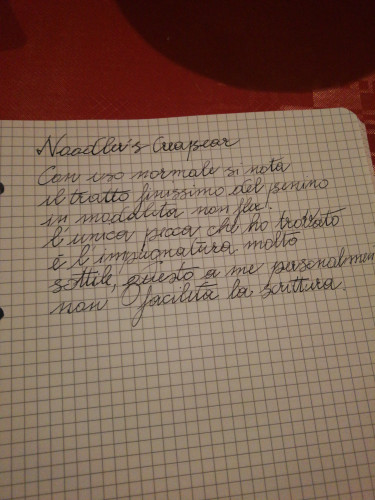 Noodler's Creaper
Con uso normale si nota
il tratto finissimo del penino
in modalita non flex.
l'unica pecca che ho trovato
è l'impugnatura molto
sottile, questo a me personalmen
non facilita la scrittura.